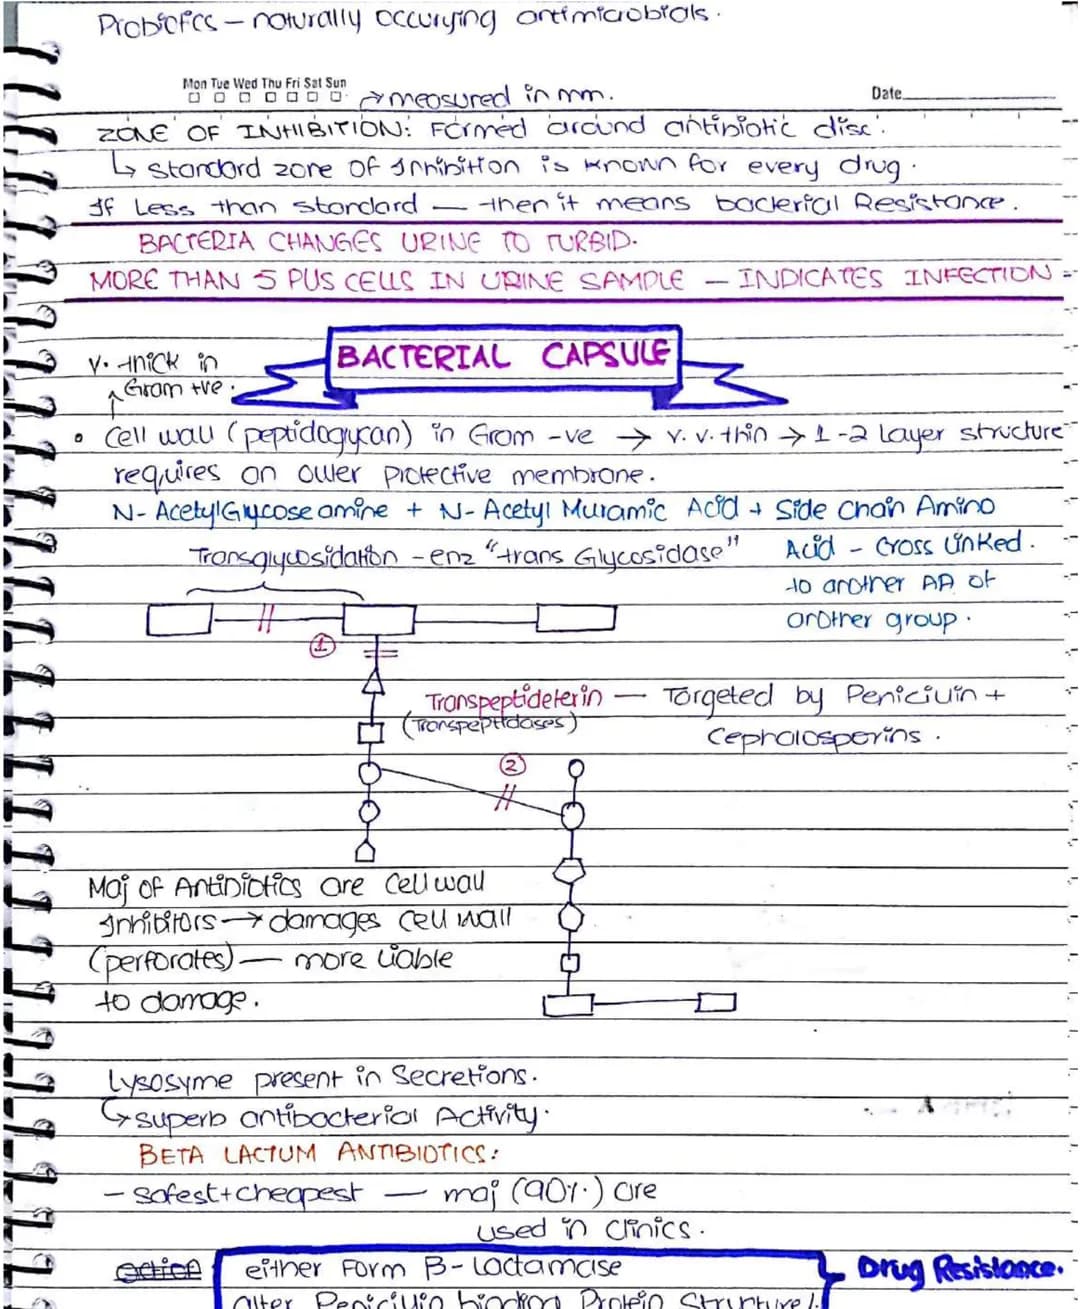 Probiotics – naturally occurying antimicrobials.
Mon Tue Wed Thu Fri Sat Sun
→ measured in mm.
Date
ZONE OF INHIBITION: Formed around antibiotic disc.
↳ standard zone of Inhibition is known for every drug.
If Less than standard — then it means bacterial Resistance.
BACTERIA CHANGES URINE TO TURBID.
MORE THAN 5 PUS CELLS IN URINE SAMPLE – INDICATES INFECTION
BACTERIAL CAPSULE
v. thick in
Gram +ve.
• Cell wall (peptidoglycan) in Gram -ve → v. v. thin → 1-2 Layer structure
requires an outer protective membrane.
N-Acetyl Glycose amine + N-Acetyl Muramic Acid + Side Chain Amino
Acid – Cross Linked.
to another AA of
another group.
Transglycosidation – enz "trans Glycosidase"
①
Transpeptideterin — Targeted by Penicillin +
(Transpeptidases)
Cephalosporins.
②
Maj of Antibiotics are Cell wall
Inhibitors → damages cell wall
(perforates) — more liable
to damage.
Lysosyme present in Secretions.
↳ superb antibacterial Activity.
BETA LACTUM ANTIBIOTICS:
– Safest + cheapest — maj (90%) are
used in Clinics.
action
either Form β-Lactamase
Drug Resistance.
alter Penicillin binding Protein Structure/.